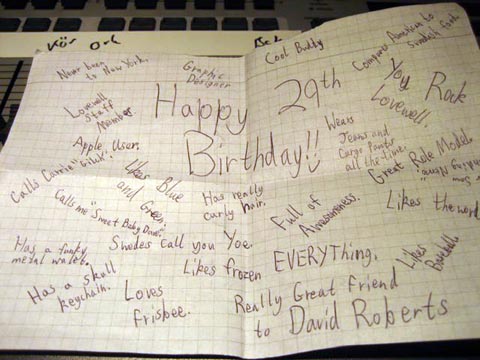 Kör Ork
Never been
to New York.
Graphic
Designer
Cool Buddy
Compares American to
Swedish Food
Lovewell
Staff
Member
Happy
29th
You
Rock
Lovewell
Apple User.
Birthday!!
Wears
Jeans and
Cargo Pants
all the time.
Great Role Model
Calls Carrie
Likes Blue
and Green
Has really
curly hair.
Calls me "Sweet Baby Dave".
Full of
Awesomeness.
Likes the word
Has a funky
metal wallet.
Swedes call you Yoe.
Likes frozen EVERYTHING.
Likes
Baseball
Has a skull
keychain.
Loves
Frisbee.
Really Great Friend
to David Roberts